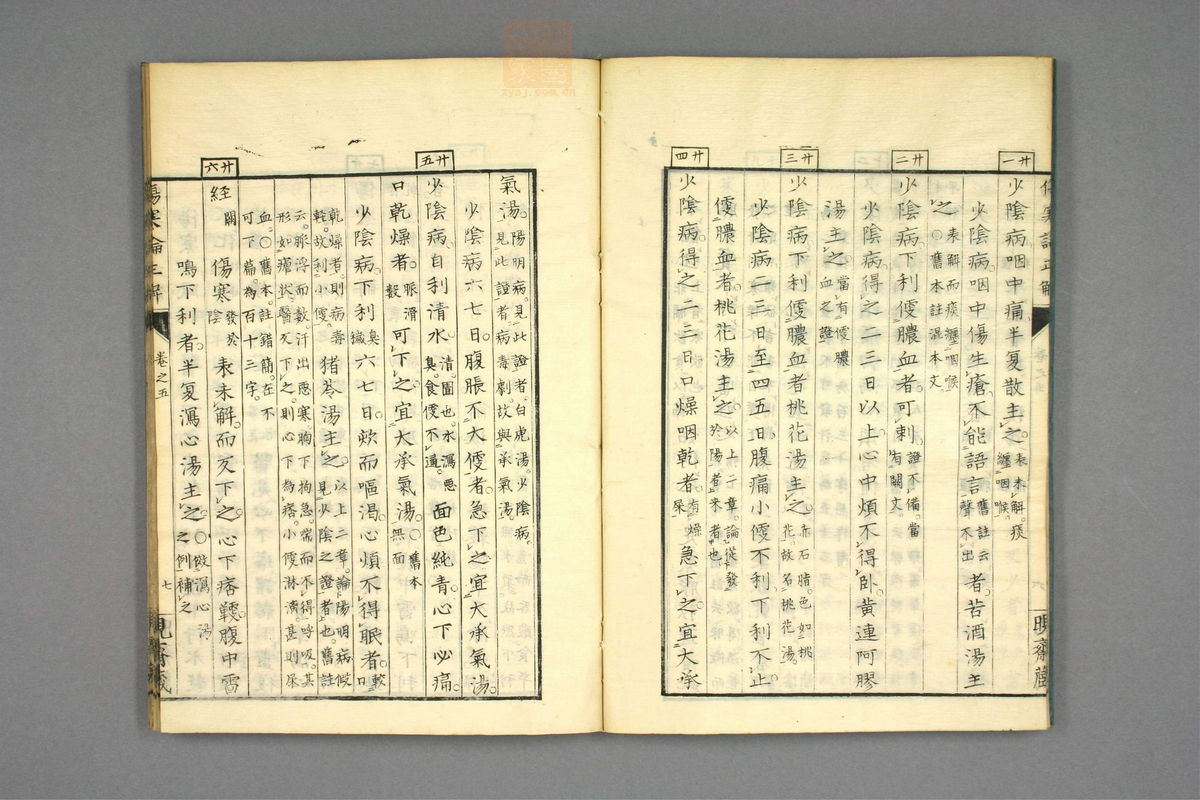 廿一
少陰病咽中痛半夏散主之表未解痰纏咽喉
少陰病咽中傷生瘡不能語言舊註云聲不出者苦酒湯主
之表解而痰纏咽喉○舊本註混本文
廿二
少陰病下利便膿血者可刺證不備當有闕文
少陰病得之二三日以上心中煩不得臥黄連阿膠
湯主之當有便膿血之證
廿三
少陰病下利便膿血者桃花湯主之赤石脂色如桃花故名桃花湯
少陰病二三日至四五日腹痛小便不利下利不止
便膿血者桃花湯主之以上二章論從發於陽者来者也
廿四
少陰病得之二三日口燥咽乾者有燥屎急下之宜大承
六
氣湯陽明病見此證者白虎湯少陰病見此證者病毒劇故與承氣湯
少陰病六七日腹脹不大便者急下之宜大承氣湯
廿五
少陰病自利清水清圊也水瀉惡臭食便不通面色純青心下必痛
口乾燥者脈滑數可下之宜大承氣湯○舊本無面
少陰病下利臭穢六七日欬而嘔渴心煩不得眠者較口
乾燥者則病毒輕故利小便猪苓湯主之以上二章論陽明病假見少陰之證者也舊註
云脈浮而數汗出惡寒胸下拘急喘而不得呼吸其形如瘧状醫反下之則心下為痞小便淋瀝甚則尿
血○舊本註錯簡在不可下篇為百十三字
廿六
経闕傷寒發於陰表未解而反下之心下痞鞕腹中雷
鳴下利者半夏瀉心湯主之○倣瀉心湯之例補之
傷寒論正解
卷之五
七